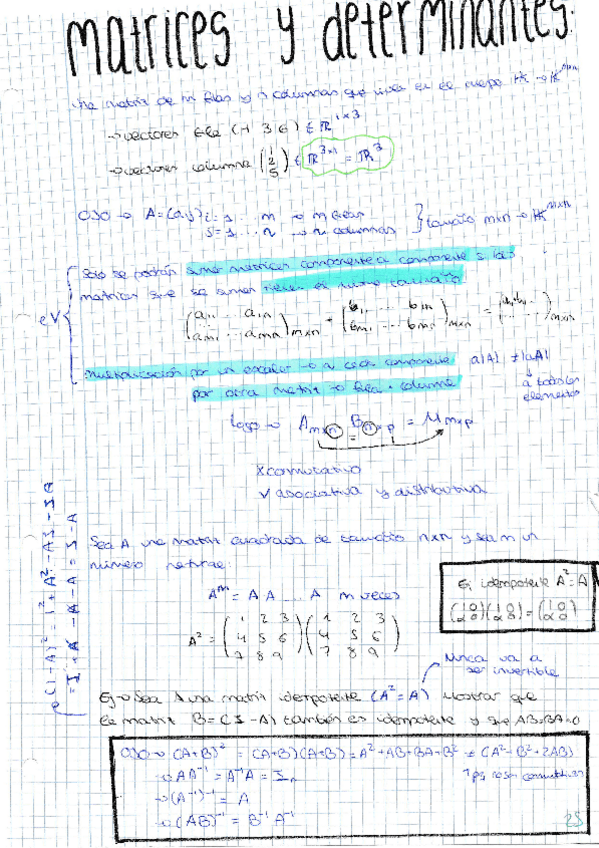 matrices y determinantes:
Una matriz de m filas y n columnas que vive en el cuerpo K → K^{mxn}
→ vectores fila (-1 3 6) ∈ R^{1×3}
→ vectores columna (1 2 5) ∈ R^{3×1} = R^3
OJO → A = (aij) i=1 ... m → m filas
j=1 ... n → n columnas } tamaño mxn → K^{mxn}
Solo se podrán sumar matrices componente a componente si las
matrices que se suman tienen el mismo tamaño
eV { (a11 ... a1n
am1 ... amn)mxn + (b11 ... b1n
bm1 ... bmn)mxn = ( )mxn
multiplicación por un escalar → a cada componente a|A| ≠ |aA|
por otra matriz → fila · columna
a todos los
elementos
luego → Amxn Bnxp = Mmxp
x conmutativo
√ asociativa y distributiva
Sea A una matriz cuadrada de tamaño nxn y sea m un
número natural:
A^m = A A ... A m veces
A² = (1 2 3
4 5 6
7 8 9) (1 2 3
4 5 6
7 8 9)
Ej idempotente A² = A
(1 0
α 0)(1 0
α 0) = (1 0
α 0)
Nunca va a
ser invertible
Ej → Sea A una matriz idempotente (A² = A) mostrar que
la matriz B = (I - A) también es idempotente y que AB=BA=0
(I-A)² = I² + A² - AI - IA
= I + A - A - A = I - A
OJO → (A+B)² = (A+B)(A+B) = A² + AB + BA + B² ≠ (A² + B² + 2AB)
→ AA⁻¹ = A⁻¹A = In
→ (A⁻¹)⁻¹ = A
→ (AB)⁻¹ = B⁻¹ A⁻¹
25